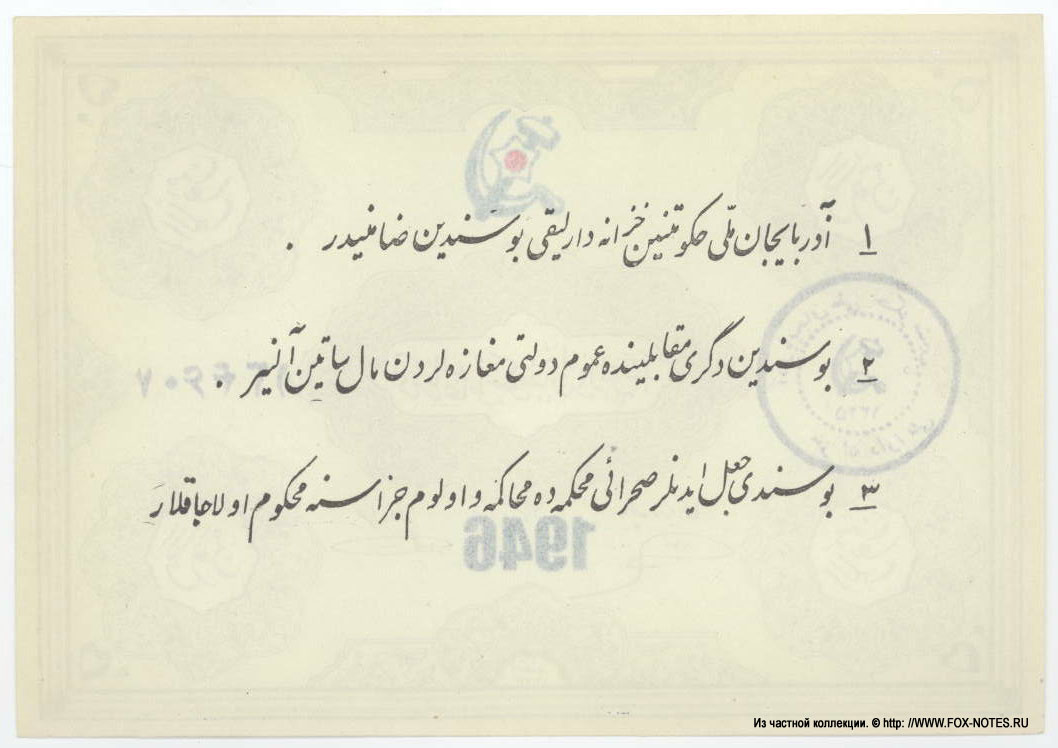 ١ آذربایجان ملّی حکومتینین خزانه دارلیقی بو سندین ضامنیدر .
٢ بو سندین دگری مقابلینده عموم دولتی مغازه لردن مال ساتین آلنیر .
٣ بو سندی جعل ایدنلر صحرائی محکمه ده محاکمه و اولوم جزاسنه محکوم اولاجاقلار
1946
Из частной коллекции. © http: //WWW.FOX-NOTES.RU